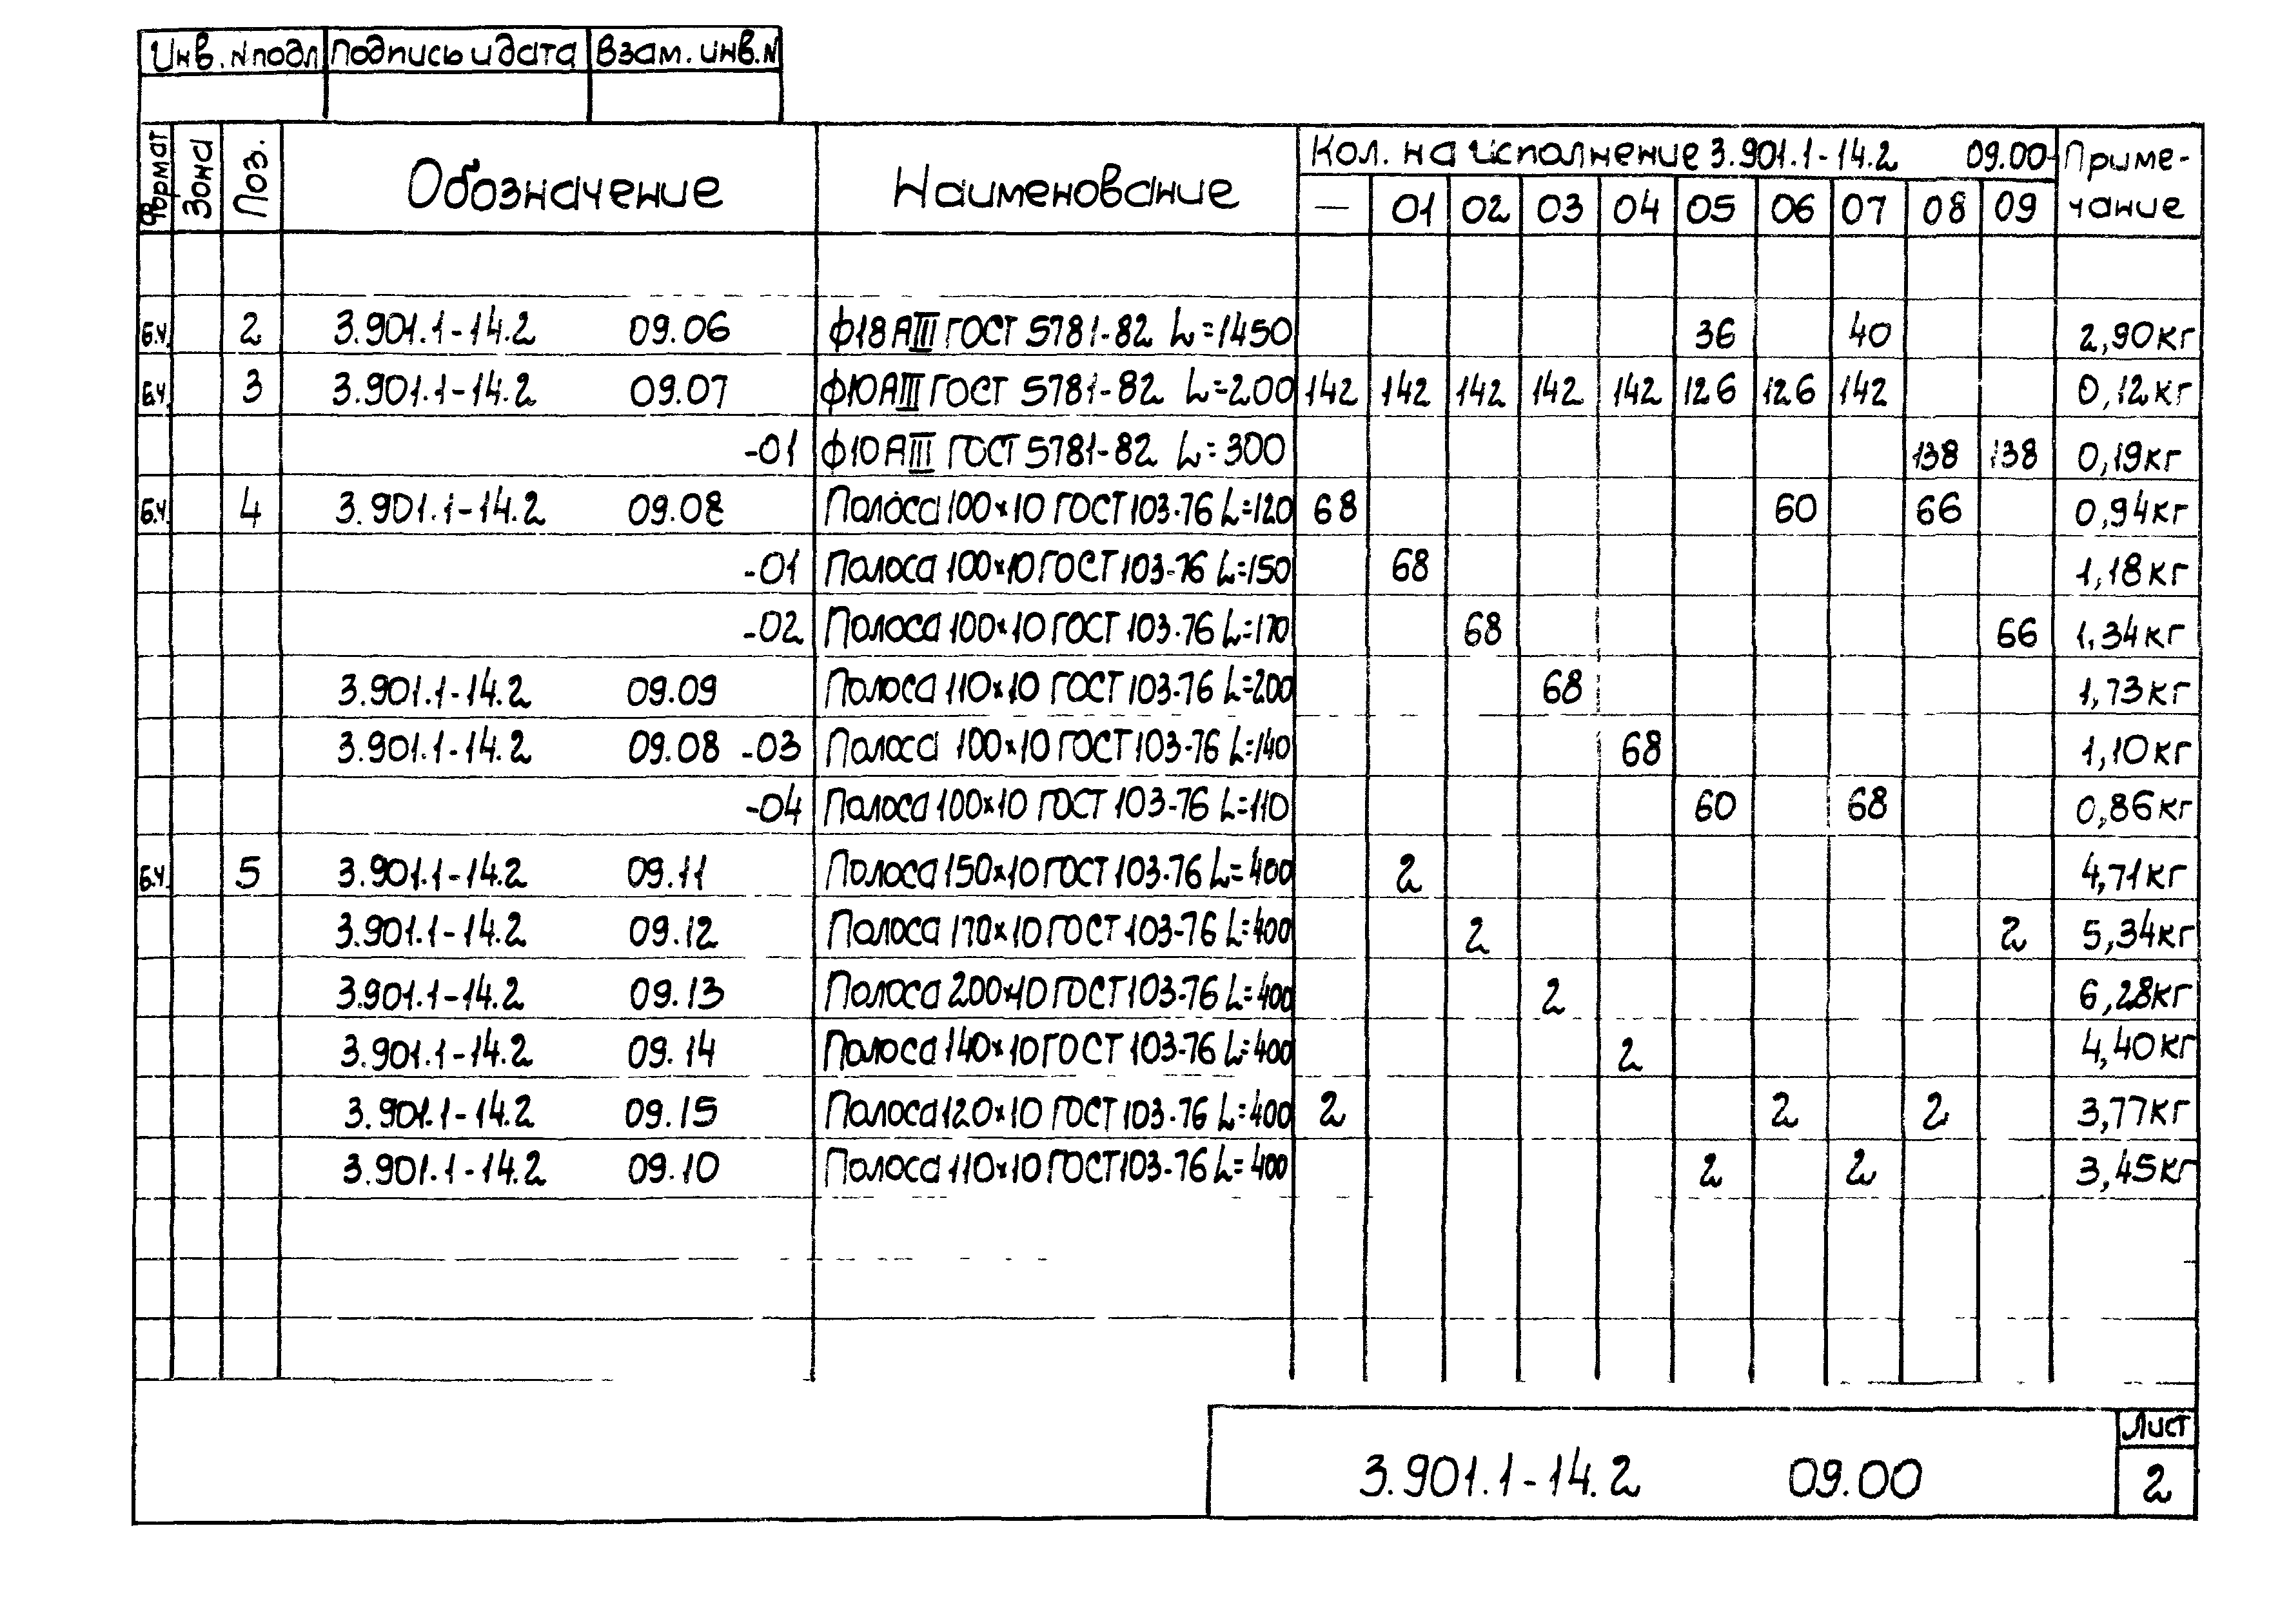 Инв. N подл Подпись и дата Взам. инв. N
Формат Зона Поз. Обозначение Наименование Кол. на исполнение 3.901.1-14.2 09.00- Приме-
чание
— 01 02 03 04 05 06 07 08 09
Б.Ч. 2 3.901.1-14.2 09.06 Ф18 АIII ГОСТ 5781-82 L=1450 36 40 2,90кг
Б.Ч. 3 3.901.1-14.2 09.07 Ф10 АIII ГОСТ 5781-82 L=200 142 142 142 142 142 126 126 142 0,12кг
-01 Ф10 АIII ГОСТ 5781-82 L=300 138 138 0,19кг
Б.Ч. 4 3.901.1-14.2 09.08 Полоса 100×10 ГОСТ 103-76 L=120 68 60 66 0,94кг
-01 Полоса 100×10 ГОСТ 103-76 L=150 68 1,18кг
-02 Полоса 100×10 ГОСТ 103-76 L=170 68 66 1,34кг
3.901.1-14.2 09.09 Полоса 110×10 ГОСТ 103-76 L=200 68 1,73кг
3.901.1-14.2 09.08 -03 Полоса 100×10 ГОСТ 103-76 L=140 68 1,10кг
-04 Полоса 100×10 ГОСТ 103-76 L=110 60 68 0,86кг
Б.Ч. 5 3.901.1-14.2 09.11 Полоса 150×10 ГОСТ 103-76 L=400 2 4,71кг
3.901.1-14.2 09.12 Полоса 170×10 ГОСТ 103-76 L=400 2 2 5,34кг
3.901.1-14.2 09.13 Полоса 200×10 ГОСТ 103-76 L=400 2 6,28кг
3.901.1-14.2 09.14 Полоса 140×10 ГОСТ 103-76 L=400 2 4,40кг
3.901.1-14.2 09.15 Полоса 120×10 ГОСТ 103-76 L=400 2 2 2 3,77кг
3.901.1-14.2 09.10 Полоса 110×10 ГОСТ 103-76 L=400 2 2 3,45кг
3.901.1-14.2 09.00
Лист
2